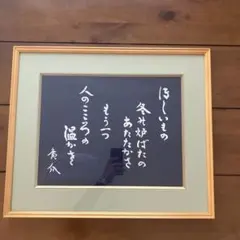 ほしいもの
冬の炉ばたの
あたたかさ
もう一つ
人のこころの
温かさ